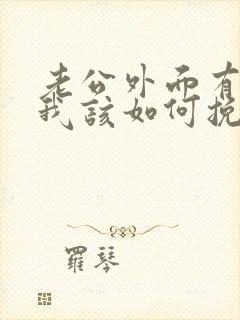 老公外面有
我该如何挽
羅琴